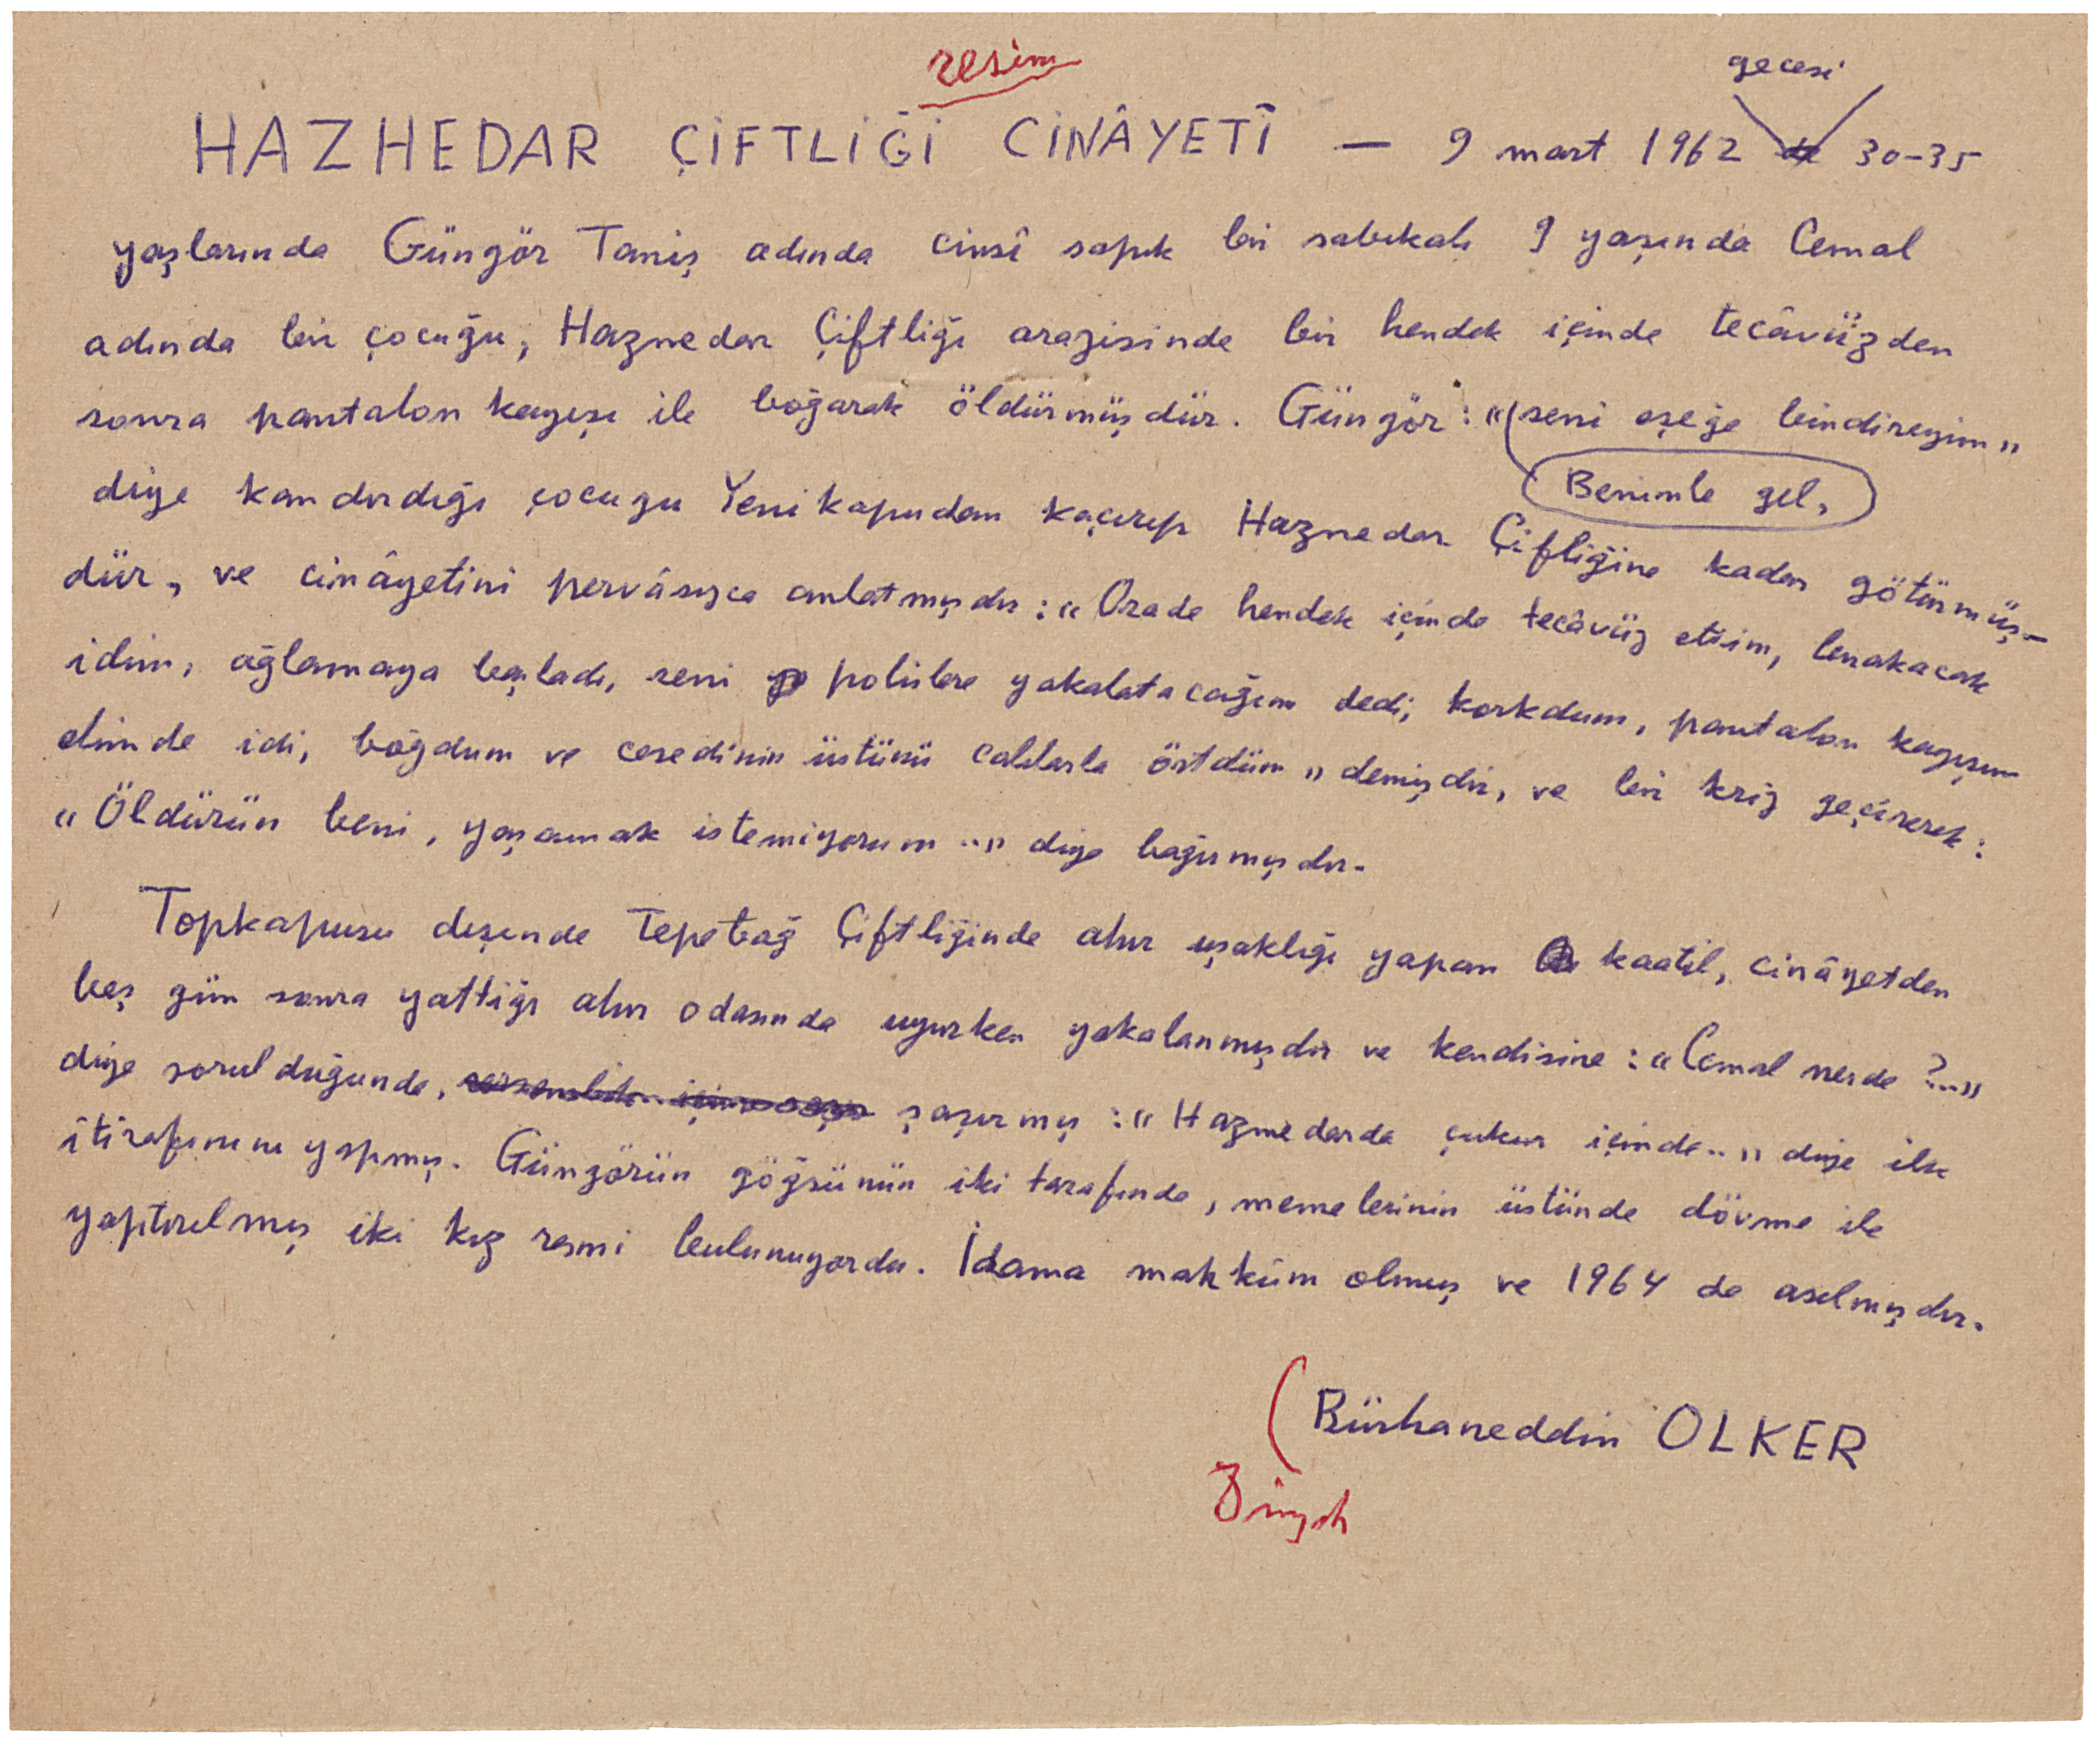 resim
gecesi
HAZHEDAR ÇİFTLİĞİ CİNÂYETİ — 9 mart 1962 de 30-35
yaşlarında Güngör Taniş adında cinsî sapık bir sabıkalı 9 yaşında Cemal
adında bir çocuğu, Haznedar Çiftliği arazisinde bir hendek içinde tecâvüzden
sonra pantalon kayışı ile boğarak öldürmüşdür. Güngör: "seni eşeğe bindireyim"
Benimle gel,
diye kandırdığı çocuğu Yenikapudan kaçırıp Haznedar Çifliğine kadar götürmüş-
dür, ve cinâyetini pervâsızca anlatmışdır: "Orada hendek içinde tecâvüz etdim, bırakacak
idim, ağlamaya başladı, seni polislere yakalatacağım dedi, korkdum, pantalon kayışım
elimde idi, boğdum ve cesedinin üstünü çalılarla örtdüm" demişdir, ve bir kriz geçirerek:
"Öldürün beni, yaşamak istemiyorum.." diye bağırmışdır.
Topkapusu dışında Tepebağ Çiftliğinde ahır uşaklığı yapan kaatil, cinâyetden
beş gün sonra yattığı ahır odasında uyurken yakalanmışdır ve kendisine: "Cemal nerde ?.."
diye sorulduğunda, şaşırmış: "Haznedarda çukur içinde.." diye ilk
îtirafınını yapmış. Güngörün göğsünün iki tarafında, memelerinin üstünde dövme ile
yaptırılmış iki kız resmi bulunuyordu. İdama mahkûm olmuş ve 1964 de asılmışdır.
Bürhaneddin OLKER